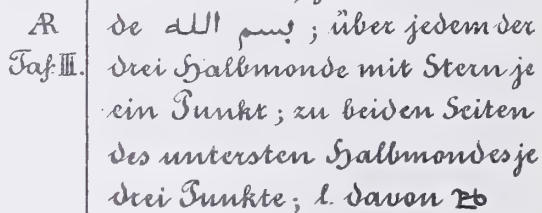 AR de بسم الله ; über jedem der
Taf. III. drei Halbmonde mit Stern je
ein Punkt ; zu beiden Seiten
des untersten Halbmondes je
drei Punkte ; l. davon